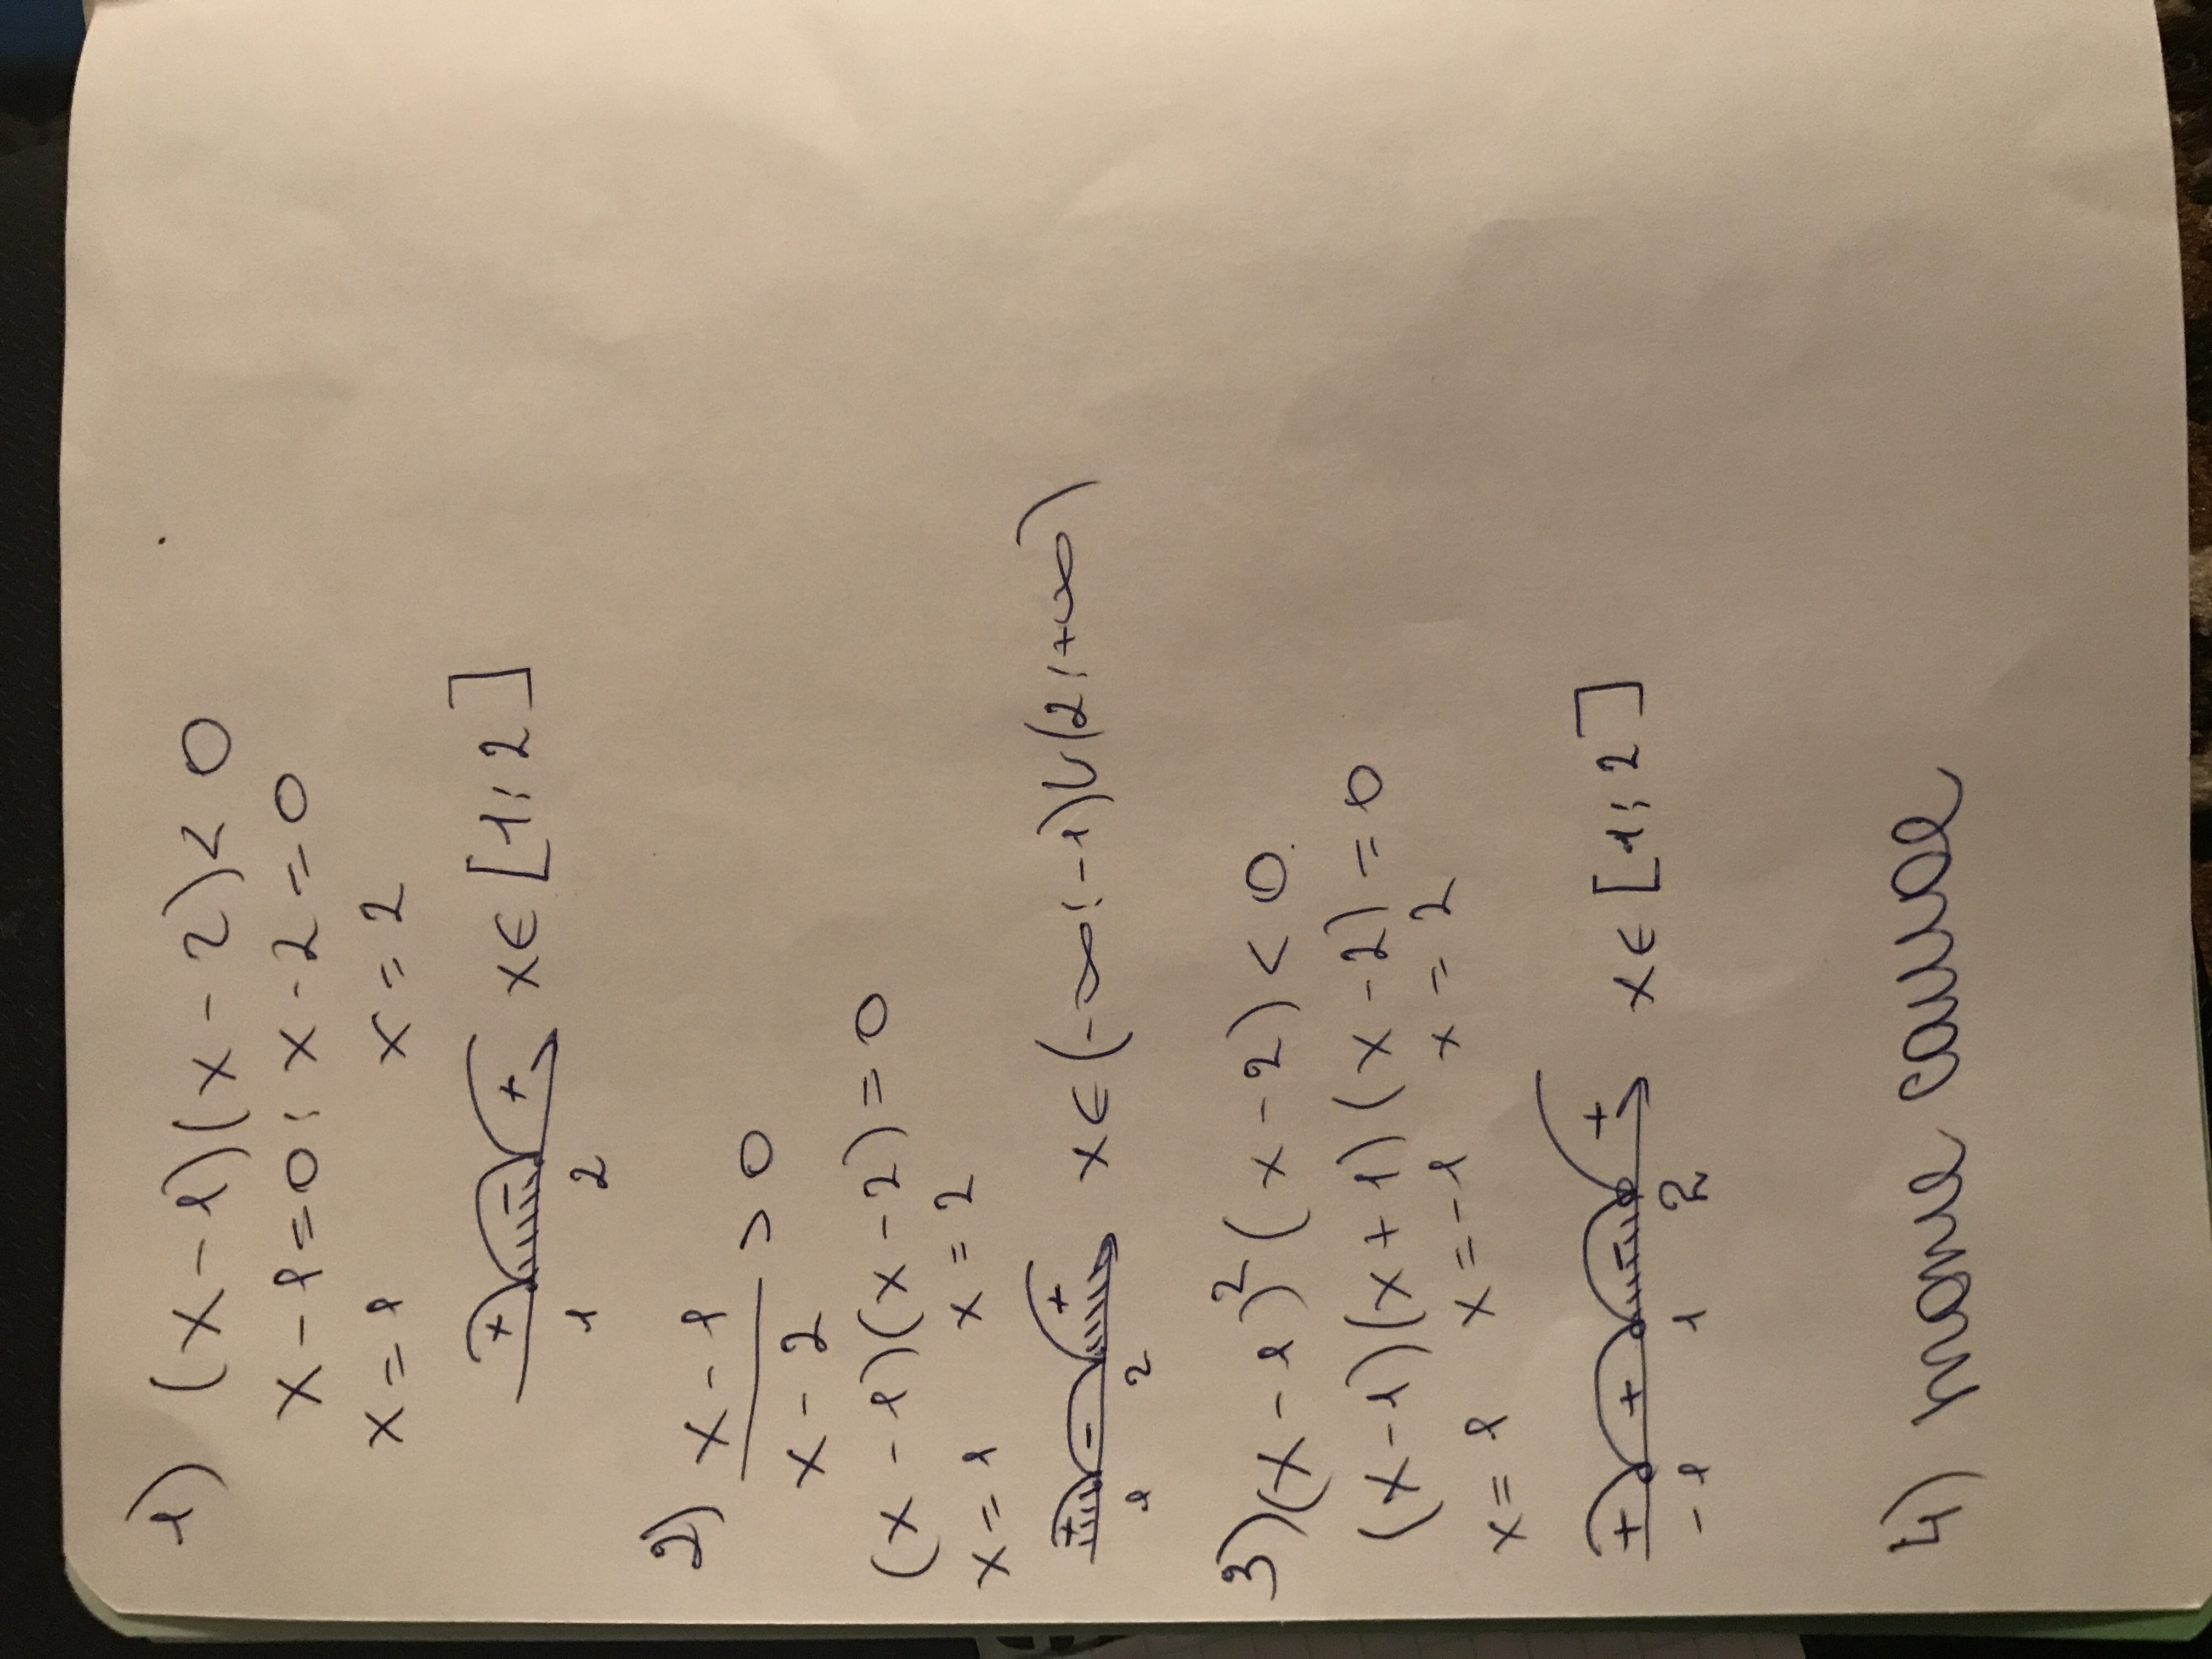 1) (x-1)(x-2)<0
x-1=0; x-2=0
x=1 x=2
+ - + x∈[1;2]
1 2
2) x-1
x-2 >0
(x-1)(x-2)=0
x=1 x=2
+ - + x∈(-∞;-1)∪(2;+∞)
1 2
3) (x-1)²(x-2)<0
(x-1)(x+1)(x-2)=0
x=1 x=-1 x=2
+ + - + x∈[1;2]
-1 1 2
4) такие самые